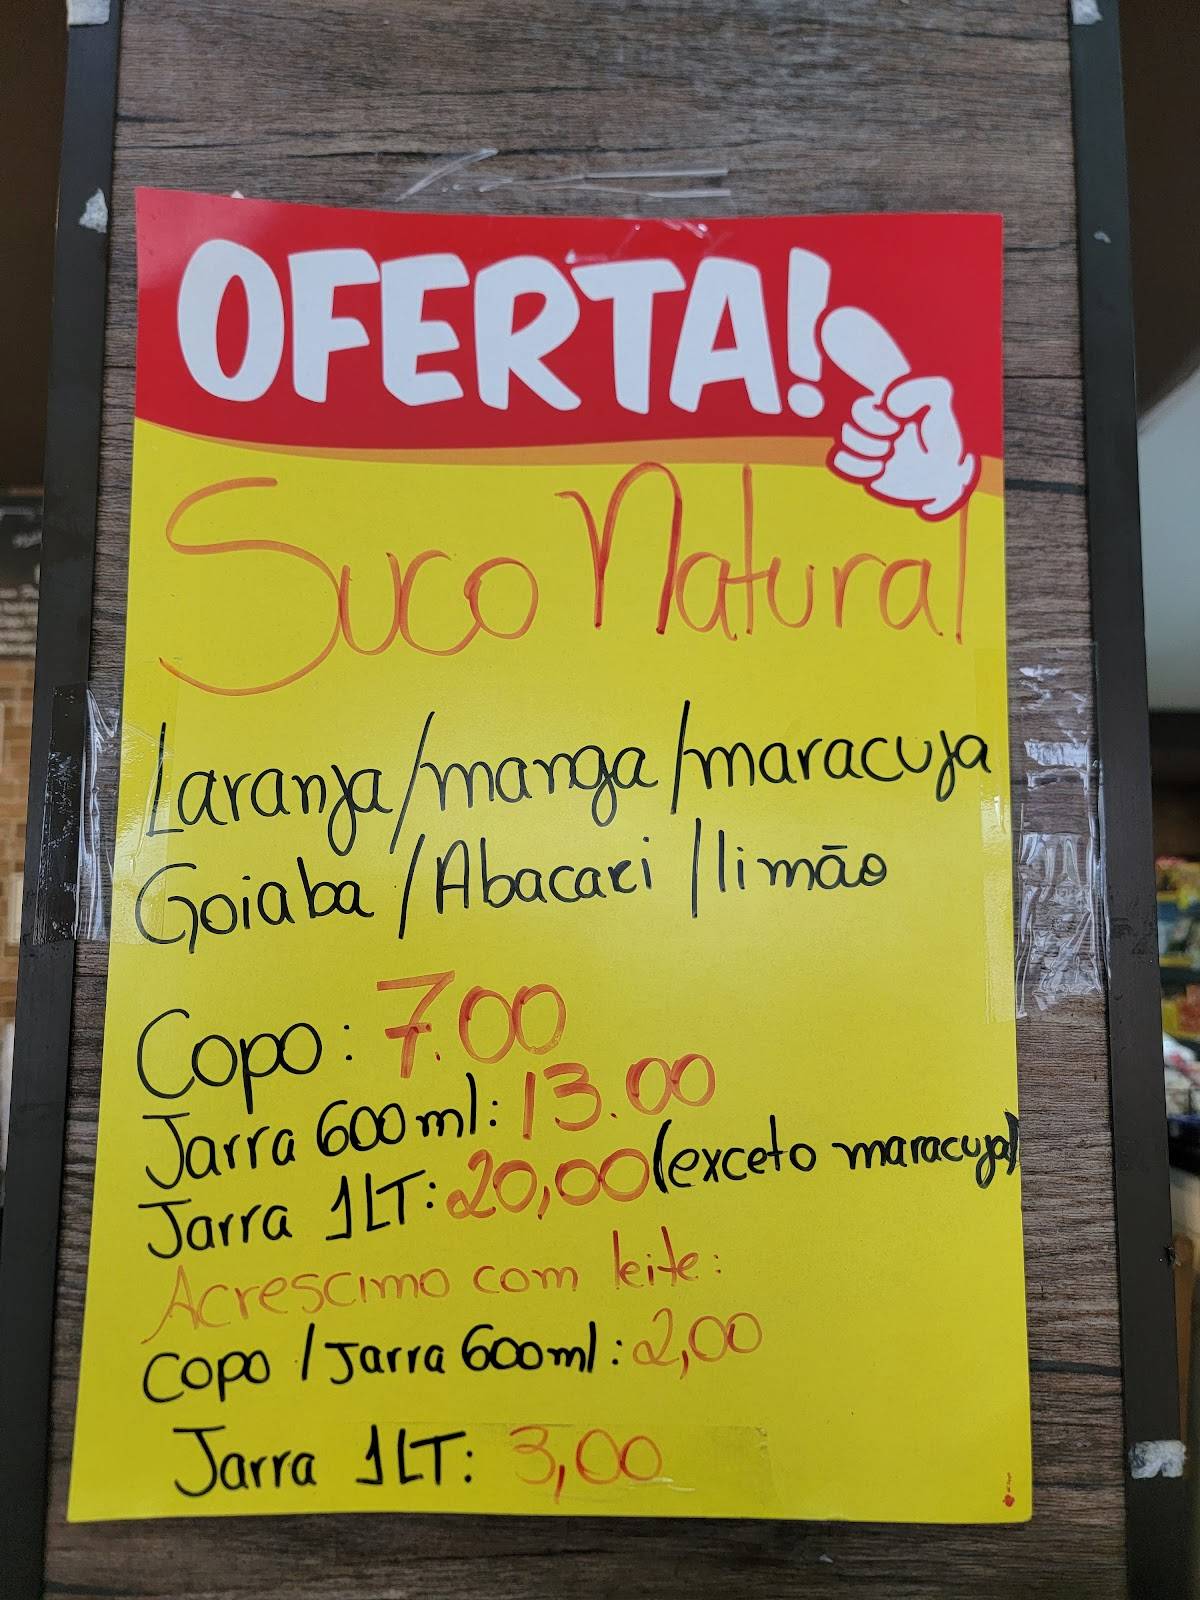 OFERTA!
Suco Natural
Laranja/manga/maracuja
Goiaba/Abacaxi/limão
Copo: 7.00
Jarra 600ml: 13.00
Jarra 1LT: 20,00 (exceto maracuja)
Acrescimo com leite:
Copo/Jarra 600ml: 2,00
Jarra 1LT: 3,00